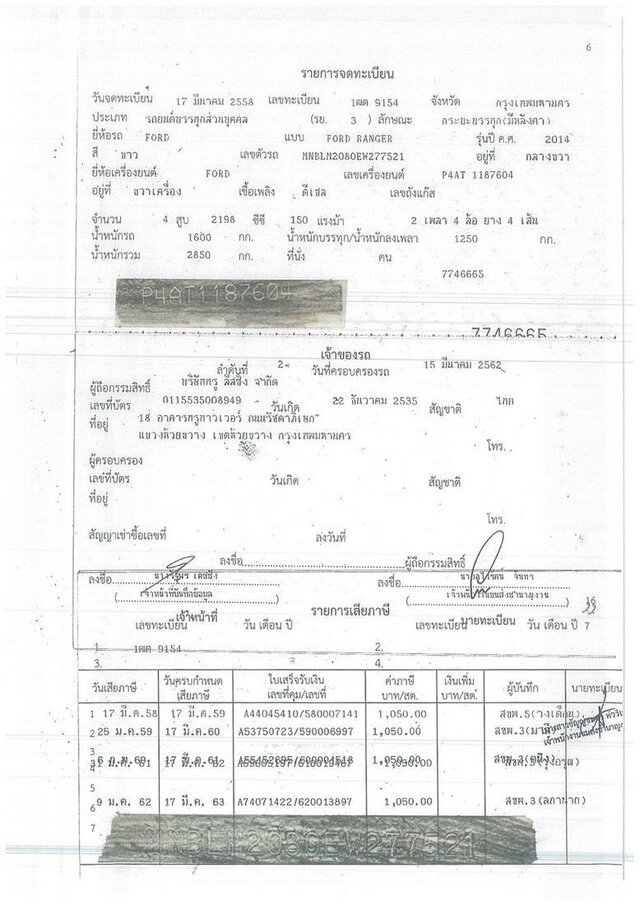 6
รายการจดทะเบียน
วันจดทะเบียน 17 มีนาคม 2558 เลขทะเบียน 1ฒศ 9154 จังหวัด กรุงเทพมหานคร
ประเภท รถยนต์บรรทุกส่วนบุคคล (รย. 3 ) ลักษณะ กระบะบรรทุก(มีหลังคา)
ยี่ห้อรถ FORD แบบ FORD RANGER รุ่นปี ค.ศ. 2014
สี ขาว เลขตัวรถ MNBLM2080EW277521 อยู่ที่ กลางขวา
ยี่ห้อเครื่องยนต์ FORD เลขเครื่องยนต์ P4AT 1187604
อยู่ที่ ขวาเครื่อง เชื้อเพลิง ดีเซล เลขถังแก๊ส
จำนวน 4 สูบ 2198 ซีซี 150 แรงม้า 2 เพลา 4 ล้อ ยาง 4 เส้น
น้ำหนักรถ 1600 กก. น้ำหนักบรรทุก/น้ำหนักลงเพลา 1250 กก.
น้ำหนักรวม 2850 กก. ที่นั่ง คน
7746665
P4AT1187604
7746665
เจ้าของรถ
ลำดับที่ 2 วันที่ครอบครองรถ 15 มีนาคม 2562
ผู้ถือกรรมสิทธิ์ บริษัททรู ลีสซิ่ง จำกัด
เลขที่บัตร 0115535008949 วันเกิด 22 ธันวาคม 2535 สัญชาติ ไทย
ที่อยู่ 18 อาคารทรูทาวเวอร์ ถนนรัชดาภิเษก
แขวงห้วยขวาง เขตห้วยขวาง กรุงเทพมหานคร
โทร.
ผู้ครอบครอง
เลขที่บัตร วันเกิด สัญชาติ
ที่อยู่
โทร.
สัญญาเช่าซื้อเลขที่ ลงวันที่
ลงชื่อ ผู้ถือกรรมสิทธิ์
ลงชื่อ ลงชื่อ
(เจ้าหน้าที่บันทึกข้อมูล) (เจ้าพนักงานขนส่งชำนาญงาน)
เจ้าหน้าที่ รายการเสียภาษี นายทะเบียน
16
เลขทะเบียน วัน เดือน ปี เลขทะเบียน วัน เดือน ปี 7
1. 1ฒศ 9154 2.
3. 4.
วันเสียภาษี วันครบกำหนดเสียภาษี ใบเสร็จรับเงิน เลขที่คุม/เลขที่ ค่าภาษี บาท/สต. เงินเพิ่ม บาท/สต. ผู้บันทึก นายทะเบียน
1 17 มี.ค.58 17 มี.ค.59 A44045410/580007141 1,050.00 สขพ.5(วงเดือน)
2 25 ม.ค.59 17 มี.ค.60 A53750723/590006997 1,050.00
5
6 9 ม.ค. 62 17 มี.ค. 63 A74071422/620013897 1,050.00 สขพ.3(ลภานาถ)
7
MNBLM2080EW277521